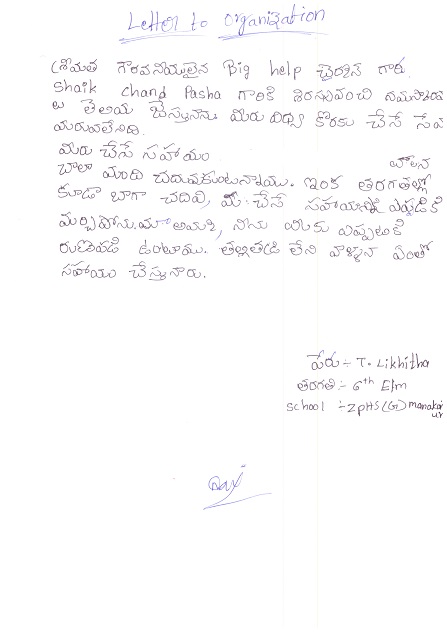 Letter to organization
శ్రీమత గౌరవనీయులైన Big help చైర్మెన్ గారు
Shaik Chand Pasha గారికి శిరస్సువంచి నమస్కారం
లు తెలియ చేస్తునను మీరు విద్య కొరకు చేసే సేవ
మరువలేనిది.
మీరు చేసే సహాయం వాలన
చాలా మంది చదువుకుంటున్నాము. ఇంక తరగతుల్లో
కూడా బాగా చదివి, మీ చేసే సహాయంని ఎప్పుడికి
మర్చిపోను. మా అమ్మకి, నేను మీకు ఎప్పుటుకి
రుణపడి ఉంటాము. తల్లితండ్రి లేని వాళ్ళున ఏంతో
సహాయం చేస్తున్నారు.
పేరు :- T. Likhitha
తరగతి :- 6th E/m
School :- ZPHS(G) manakor
ur